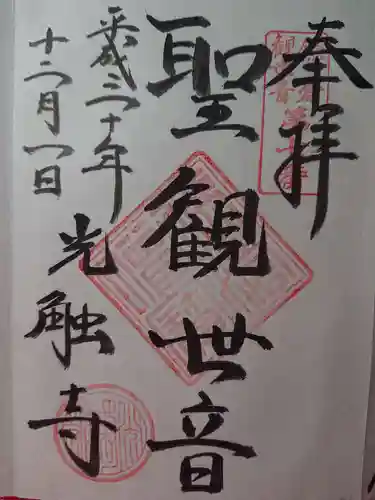 奉拝
聖観世音
平成三十年
十二月一日
光触寺